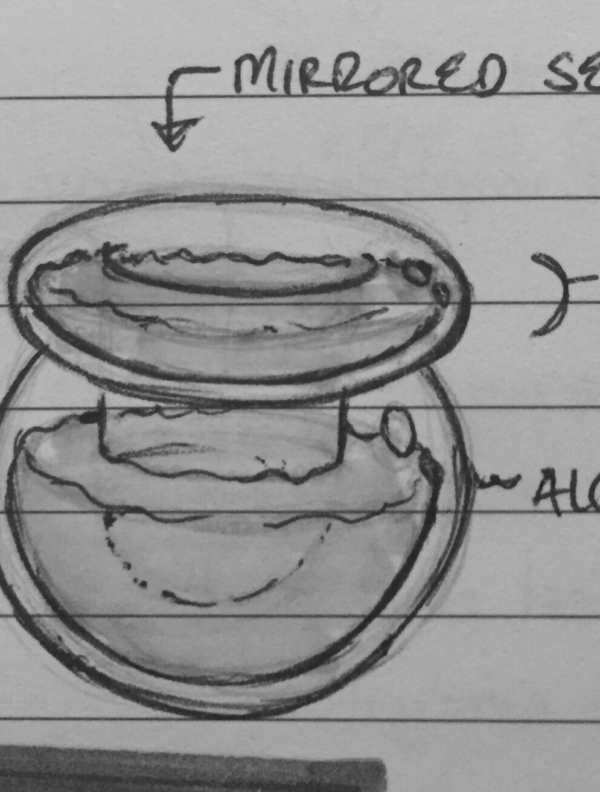 MIRRORED SE
ALC